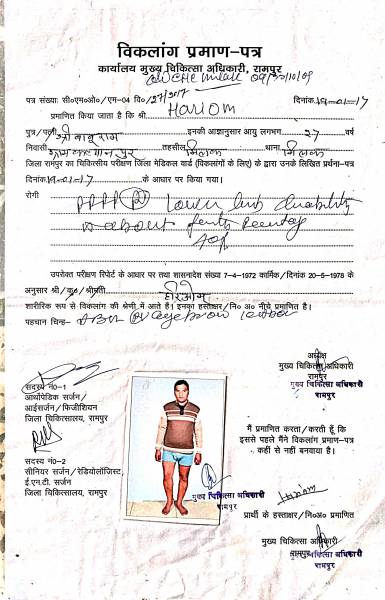 विकलांग प्रमाण–पत्र
कार्यालय मुख्य चिकित्सा अधिकारी, रामपुर
पत्र संख्याः सी०एम०ओ०/एम–04 वि०/27/2017 दिनांक 19-01-17
प्रमाणित किया जाता है कि श्री Hariom
पुत्र/पत्नी श्री बाबू राम इनकी आज्ञानुसार आयु लगभग 27 वर्ष
निवासी तहसील मिलक थाना मिलक
जिला रामपुर का चिकित्सीय परीक्षण जिला मेडिकल वार्ड (विकलांगों के लिए) के द्वारा उनके लिखित प्रर्थना–पत्र
दिनांक 19-01-17 के आधार पर किया गया।
रोगी PPRP (R) Lower limb disability
is about forty percentage
40%
उपरोक्त परीक्षण रिपोर्ट के आधार पर तथा शासनादेश संख्या 7–4–1972 कार्मिक/दिनांक 20–5–1978 के
अनुसार श्री/कु०/श्रीमति हरिओम्
शारीरिक रूप से विकलांग की श्रेणी में आते हैं। इनका हस्ताक्षर/नि० अ० नीचे प्रमाणित है।
पहचान चिन्ह– eyebrow
सदस्य नं0–1
आर्थोपैडिक सर्जन/
आईसर्जन/फिजीशियन
जिला चिकित्सालय, रामपुर
सदस्य नं0–2
सीनियर सर्जन/रेडियोलॉजिस्ट,
ई.एन.टी. सर्जन
जिला चिकित्सालय, रामपुर
मुख्य चिकित्सा अधिकारी
रामपुर
मुख्य चिकित्सा अधिकारी
रामपुर
मुख्य चिकित्सा अधिकारी
रामपुर
मैं प्रमाणित करता/करती हूँ कि
इससे पहले मैंने विकलांग प्रमाण–पत्र
कहीं से नहीं बनवाया है।
Hariom
प्रार्थी के हस्ताक्षर/नि०अ० प्रमाणित
मुख्य चिकित्सा अधिकारी
रामपुर